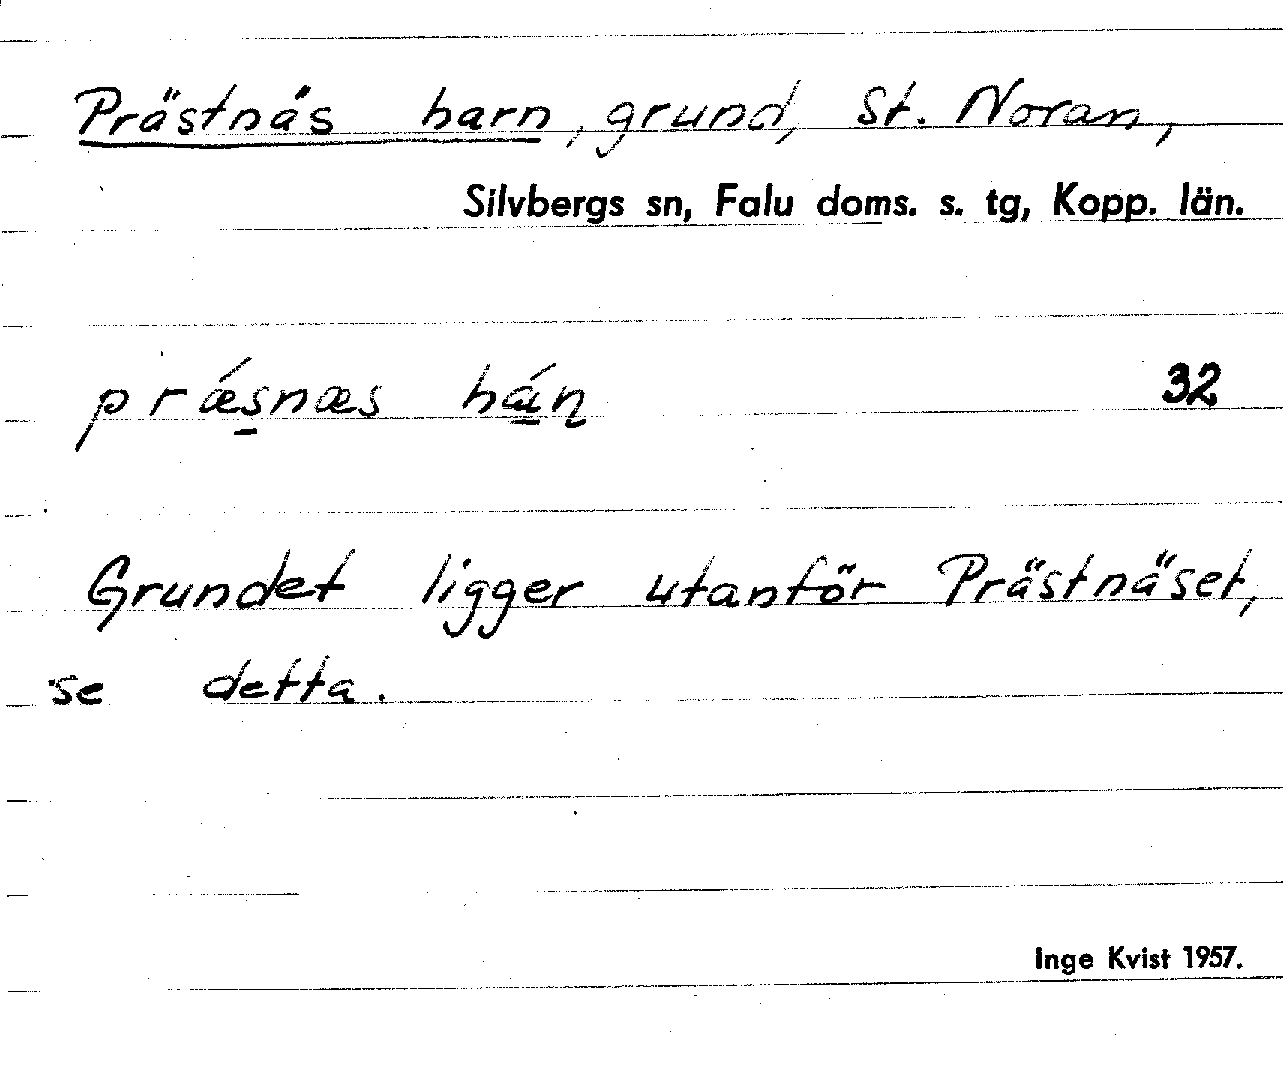 Prästnäs harn, grund, St. Noran,
Silvbergs sn, Falu doms. s. tg, Kopp. län.
prǽs̱næs há̱ɳ 32
Grundet ligger utanför Prästnäset,
se detta.
Inge Kvist 1957.